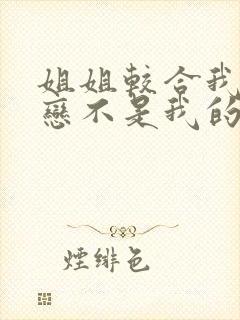 姐姐較合我
戀不是我的
煙緋色